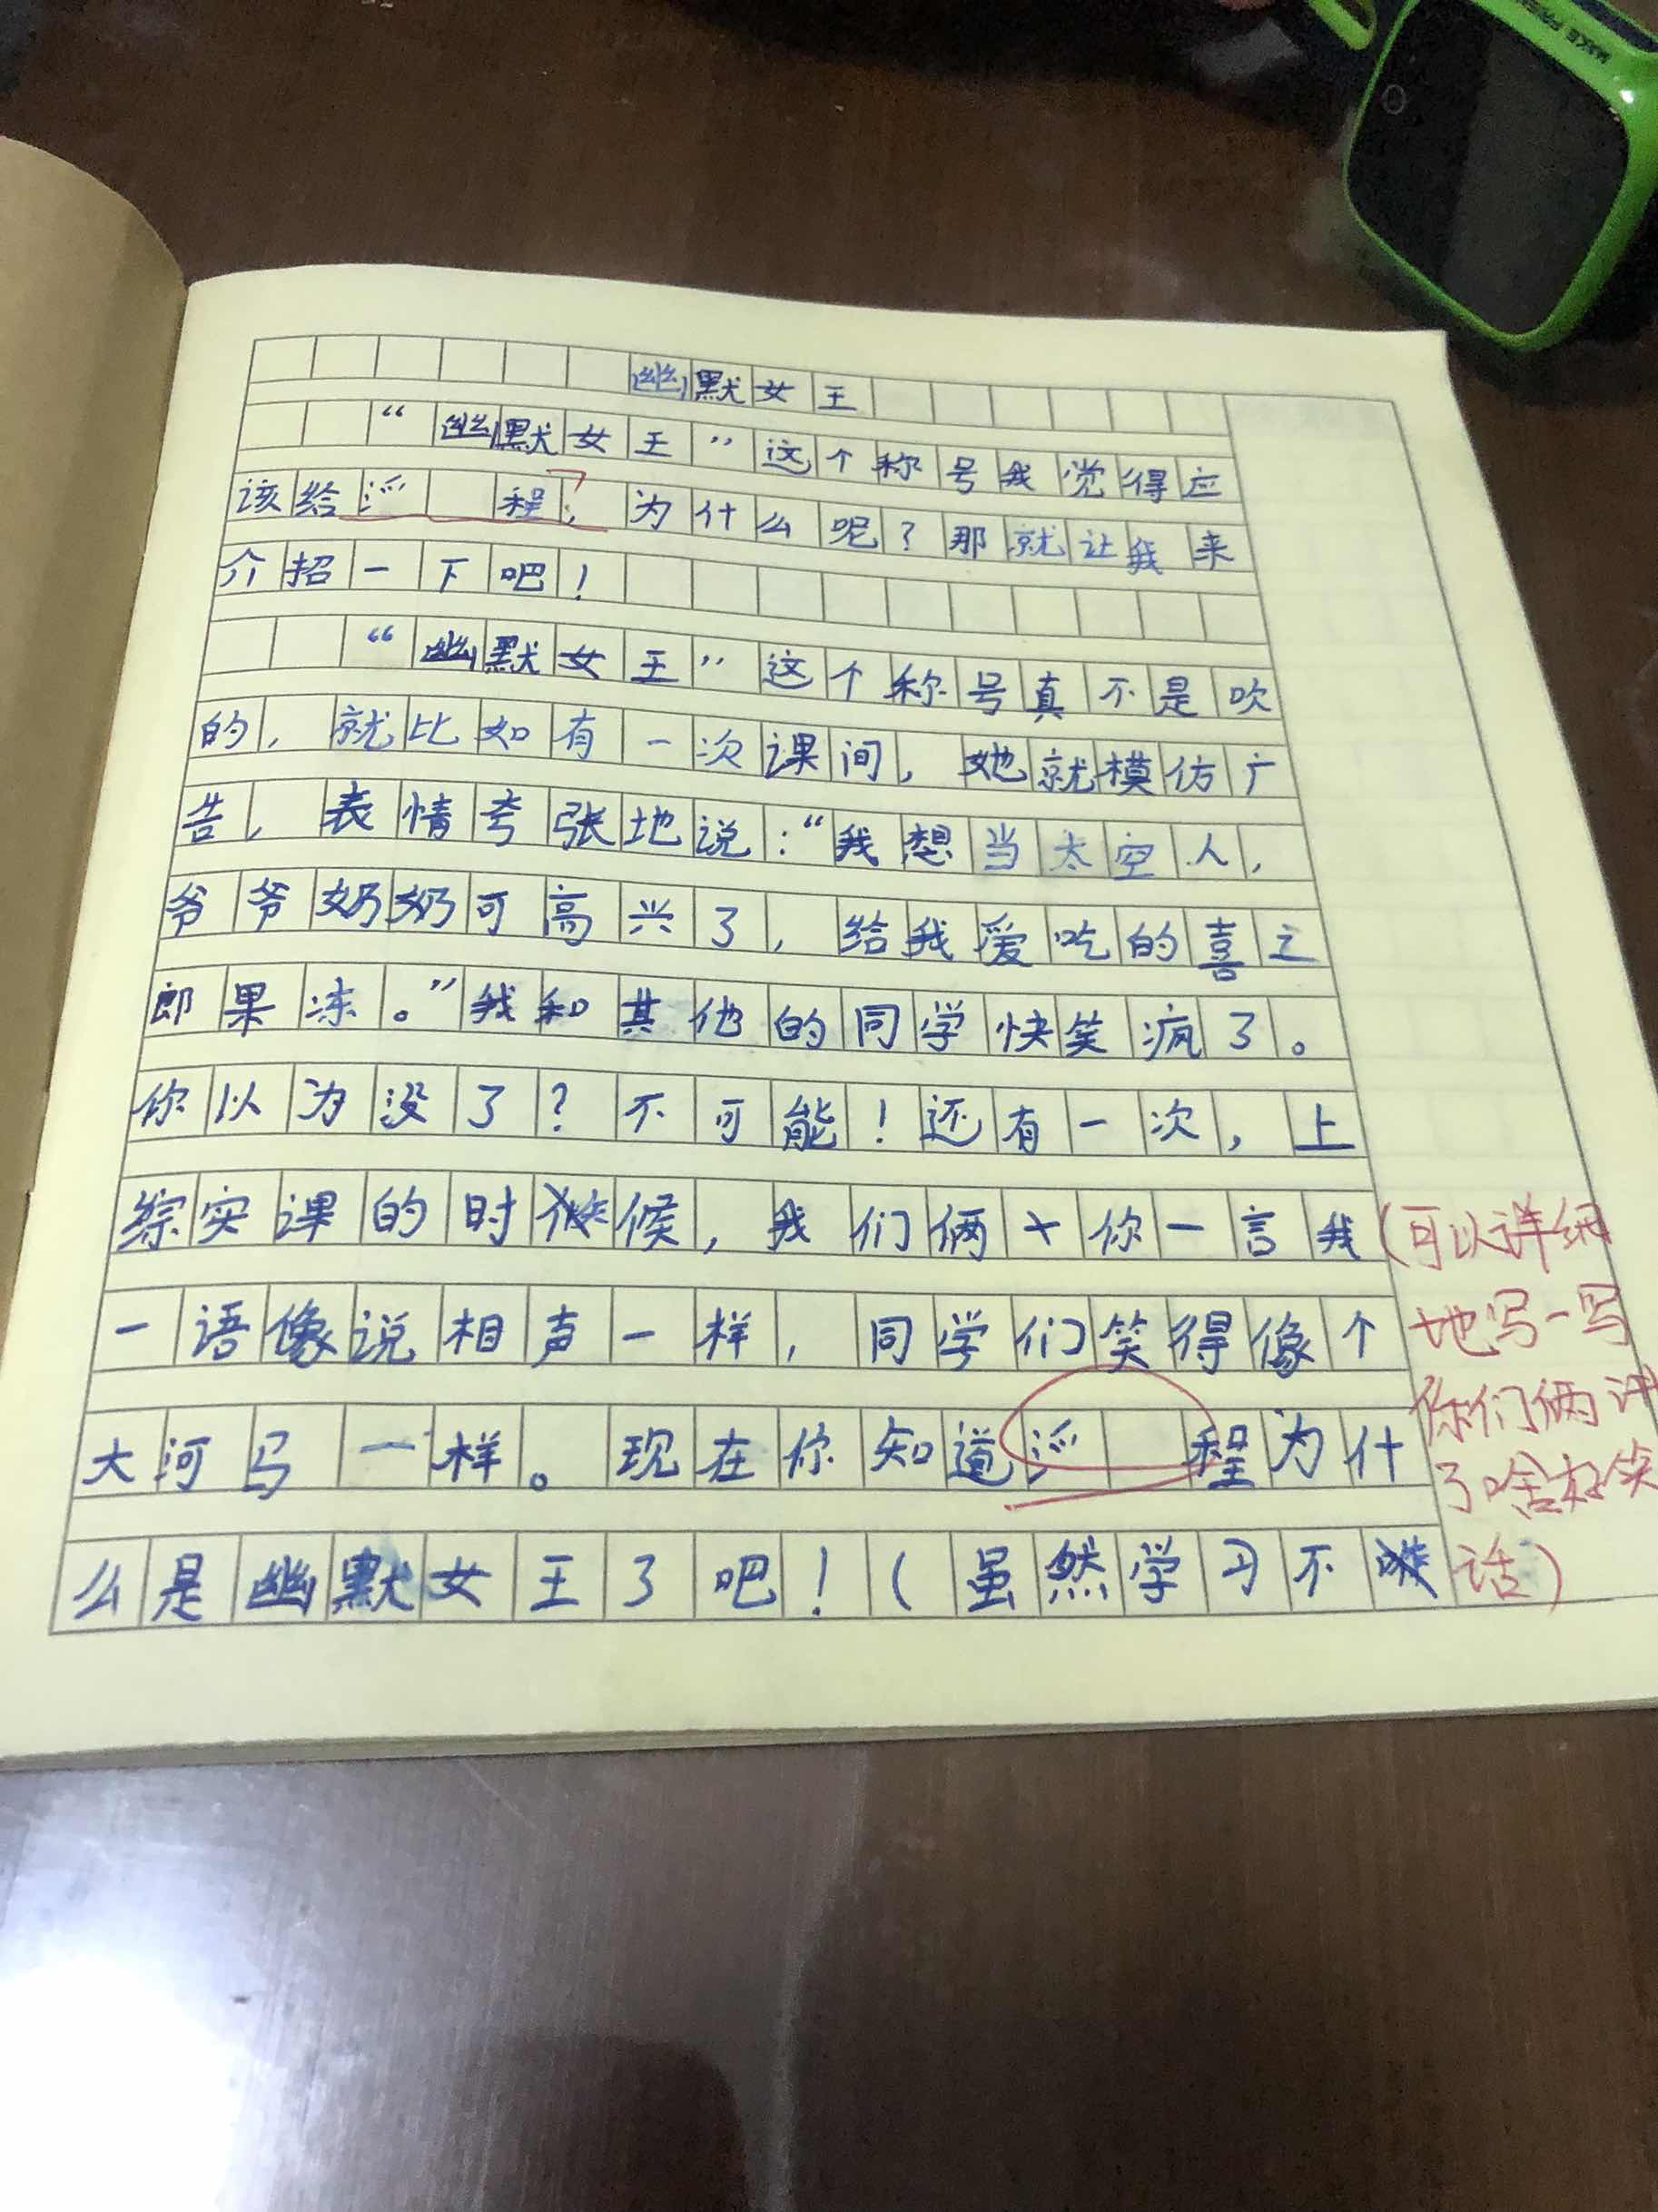 幽默女王
“幽默女王”这个称号我觉得应
该给 程,为什么呢?那就让我来
介绍一下吧!
“幽默女王”这个称号真不是吹
的,就比如有一次课间,她就模仿广
告,表情夸张地说:“我想当太空人,
爷爷奶奶可高兴了,给我爱吃的喜之
郎果冻。”我和其他的同学快笑疯了。
你以为没了?不可能!还有一次,上
综实课的时候,我们俩 你一言我
一语像说相声一样,同学们笑得像个
大河马一样。现在你知道 程为什
么是幽默女王了吧!(虽然学习不
(可以详细
地写一写
你们俩讲
了啥好笑
话)